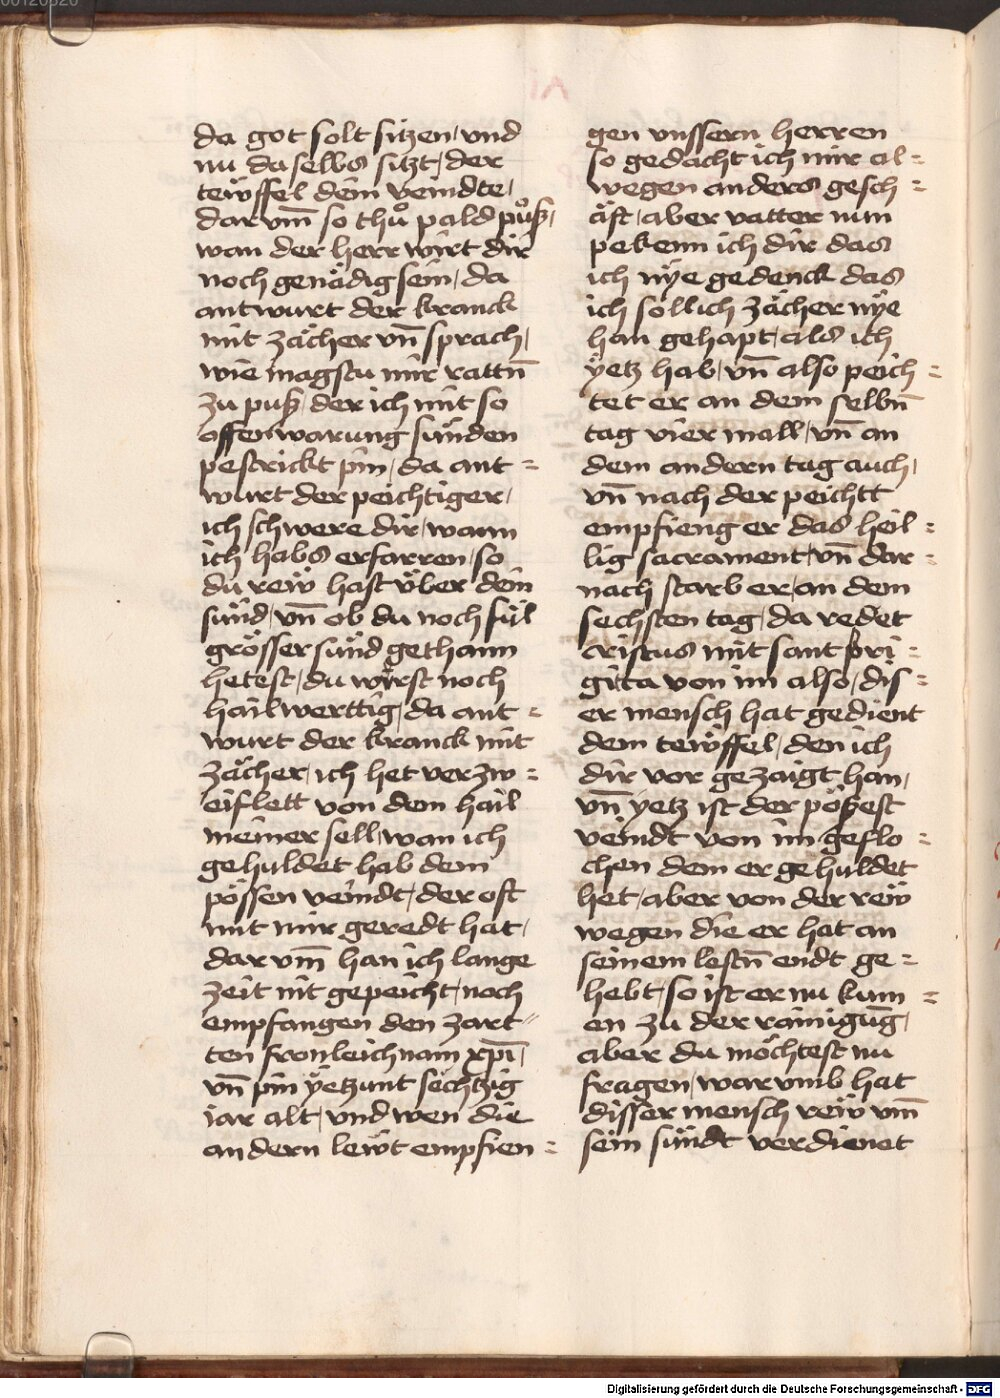 da got solt sitzen, vnd
nu da selbs sitzt, der
tewffel dein veindte,
dar vm̄ so thů pald půß,
wan der herr wirt dir
noch genädig sein, da
antwurt der kranck
mit zächer vn̄ sprach,
wie magstu mir rattn̄
zu puß, der ich mit so
offenwarung sünden
pestrickt pin, da ant=
wurt der peichtiger,
ich schwere dir, wann
ich habs erfarren, so
du rew hast über dein
sünd, vn̄ ob du noch fül
grösser sünd gethann
hetest, du wirst noch
hailwerttig, da ant=
wurt der kranck mit
zächer, ich het verzw=
eiflett von dem hail
meiner sell, wan ich
gehuldet hab dem
pössen veindt, der oft
mit mir geredt hat,
dar vm̄ han ich lange
zeit nit gepeicht, noch
empfangen den zart=
ten fronleichnam xpī,
vn̄ pin yetzunt sechtzig
iar alt, vnd wen die
andern lewt empfien=
gen vnssern herren
so gedacht ich mir al=
wegen anders gesch=
äft, aber vatter nun
pekenn ich dir das
ich nÿe gedenck das
ich söllich zächer nÿe
han gehapt, als ich
ÿetz hab, vn̄ also peich=
tet er an dem selbn̄
tag vier mall, vn̄ an
dem andern tag auch,
vn̄ nach der peichtt
empfieng er das heil=
lig sacrament, vn̄ dar=
nach starb er, an dem
sechsten tag, da redet
cristus mit sant pri=
gita von im also, dis=
er mensch hat gedient
dem tewffel, den ich
dir vor gezaigt han,
vn̄ yetz ist der pößest
veindt von im geflo=
chen dem er gehuldet
het, aber von der rew
wegen die er het an
seinem lestn̄ endt ge=
hebt, so ist er nu kum=
en zu der rainigūg,
aber du möchtest nu
fragen, warvmb hat
disser mensch rew vm̄
sein sündt verdienet
Digitalisierung gefördert durch die Deutsche Forschungsgemeinschaft - DFG